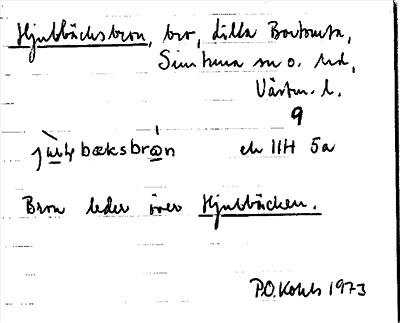 Hjulbäcksbron, bro, Lilla Bovtomta,
Simtuna sn o. hd,
Västm. l.
9
bæksbron ek 11H 5a
Bron leder över Hjulbäcken.
P.O. Kohls 1973